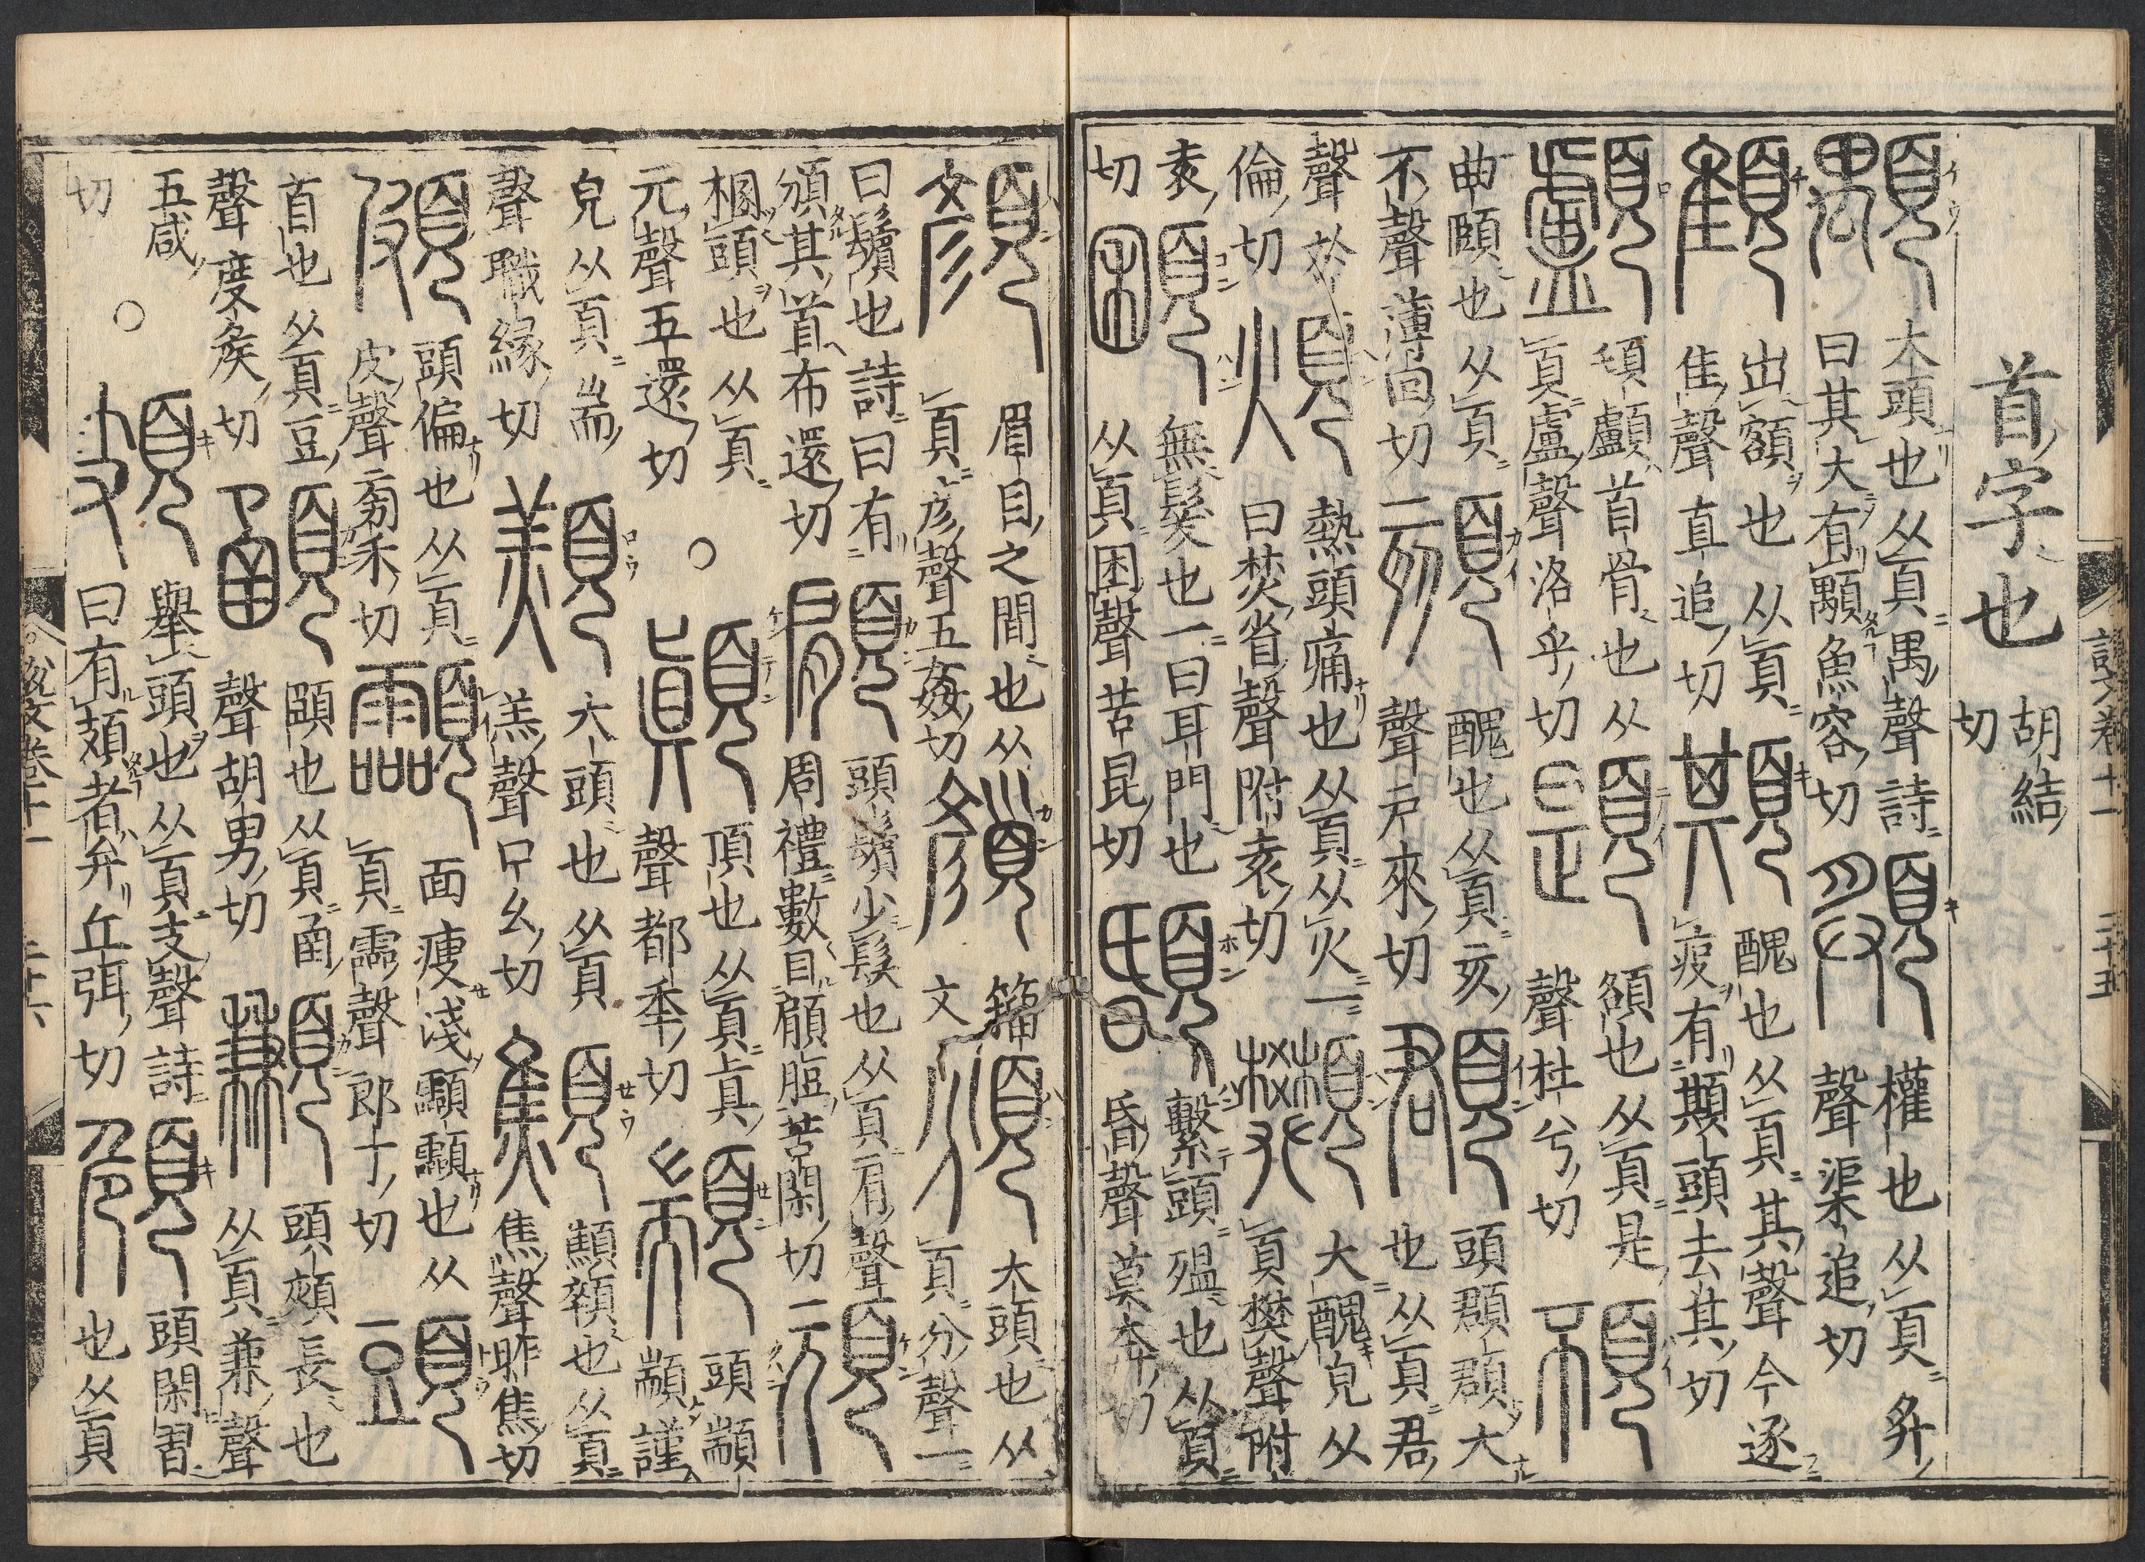 首字也 胡結切
顒 大頭也从頁禺聲詩
曰其大有顒魚容切
頯 權也从頁𢍏
聲渠追切
顀 出額也从頁
隹聲直追切
䫏 醜也从頁其聲今逐
疫有䫏頭去其切
顱 䪼顱首骨也从
頁盧聲洛乎切
題 頟也从頁是
聲杜兮切
䪹
曲頤也从頁
不聲薄回切
頦 醜也从頁亥
聲戶來切
頵 頭頵頵大
也从頁君
聲於
倫切
煩 熱頭痛也从頁从火一
曰焚省聲附袁切
䫶 大醜皃从
頁樊聲附
袁
切
無髮也一曰耳門也
从頁囷聲苦昆切
繫頭殟也从頁
昏聲莫奔切
顏 眉目之間也从
頁彥聲五姦切
籀
文
頒 大頭也从
頁分聲一
曰鬢也詩曰有
頒其首布還切
顅 頭鬢少髮也从頁肩聲
周禮數目顅脰苦閑切
頑
㮯頭也从頁
元聲五還切
〇
顛 頂也从頁真
聲都秊切
顓 頭顓
顓謹
皃从頁耑
聲職緣切
大頭也从頁
羔聲口幺切
顦 顦顇也从頁
焦聲昨焦切
頗 頭偏也从頁
皮聲滂禾切
面瘦淺顟顟也从
頁霝聲郎丁切
頭
首也从頁豆
聲度矦切
顄 頤也从頁圅
聲胡男切
頭頰長也
从頁兼聲
五咸
切
〇
頍 舉頭也从頁支聲詩
曰有頍者弁丘弭切
頭閑習
也从頁
説文卷十一 二十五
説文卷十一 二十六